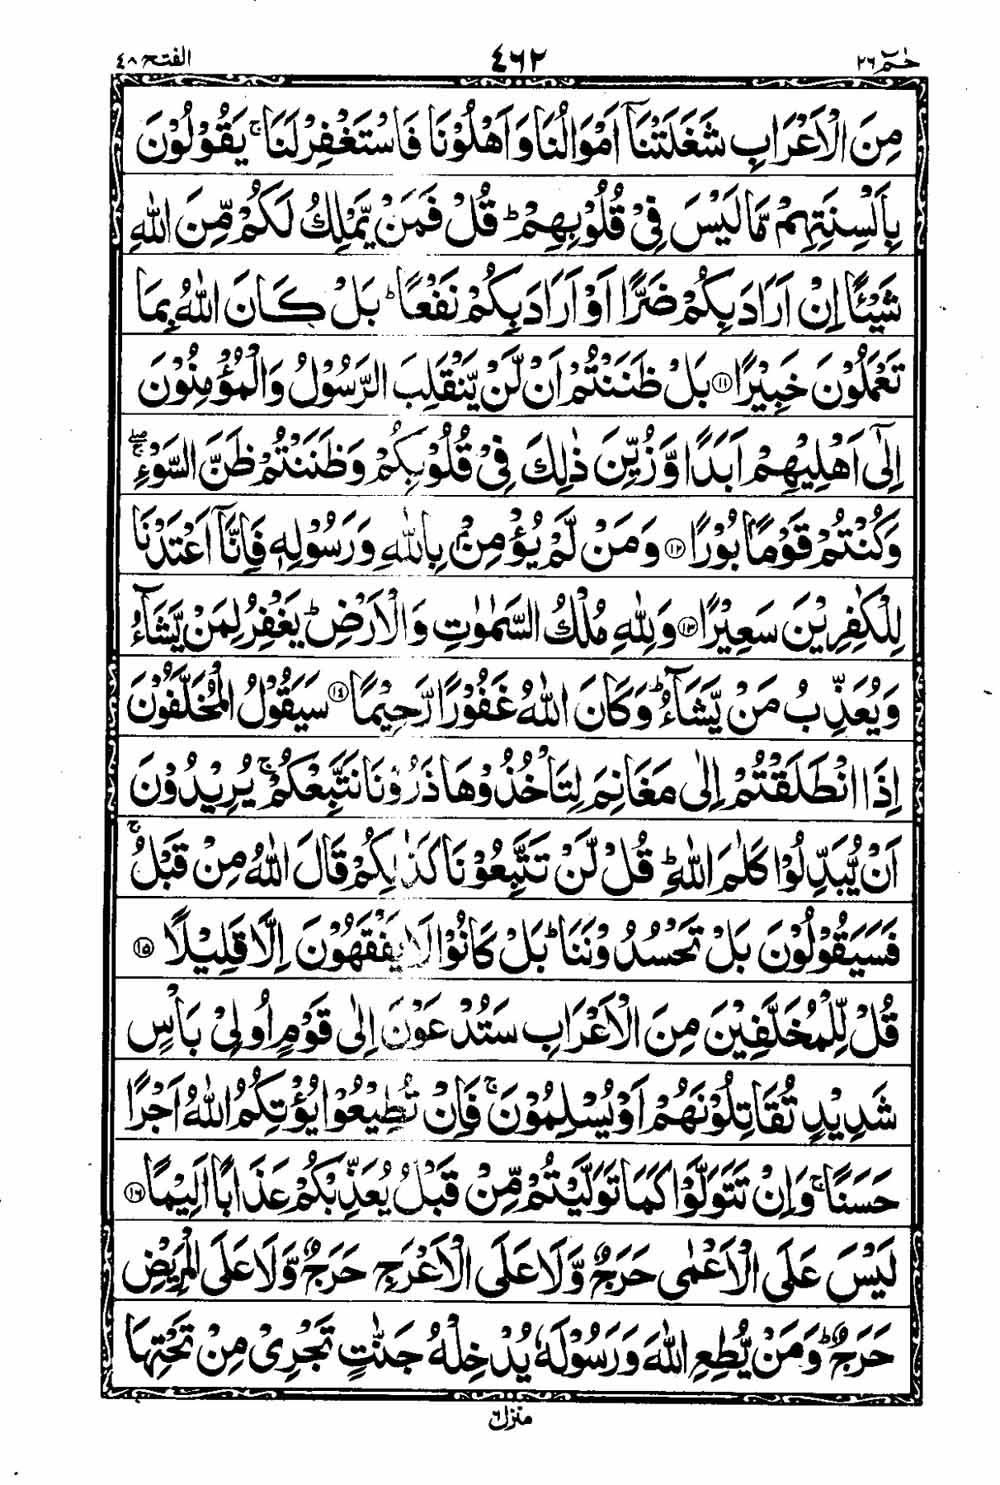 حٰمٓ ٢٦ ٤٦٢ الفتح ٤٨
مِنَ الْاَعْرَابِ شَغَلَتْنَاۤ اَمْوَالُنَا وَاَهْلُوْنَا فَاسْتَغْفِرْ لَنَا ۚ يَقُوْلُوْنَ
بِاَلْسِنَتِهِمْ مَّا لَيْسَ فِيْ قُلُوْبِهِمْ ؕ قُلْ فَمَنْ يَّمْلِكُ لَكُمْ مِّنَ اللّٰهِ
شَيْـًٔا اِنْ اَرَادَ بِكُمْ ضَرًّا اَوْ اَرَادَ بِكُمْ نَفْعًا ؕ بَلْ كَانَ اللّٰهُ بِمَا
تَعْمَلُوْنَ خَبِيْرًا ۝١١ بَلْ ظَنَنْتُمْ اَنْ لَّنْ يَّنْقَلِبَ الرَّسُوْلُ وَالْمُؤْمِنُوْنَ
اِلٰۤى اَهْلِيْهِمْ اَبَدًا وَّزُيِّنَ ذٰلِكَ فِيْ قُلُوْبِكُمْ وَظَنَنْتُمْ ظَنَّ السَّوْءِ ۖۚ
وَكُنْتُمْ قَوْمًۢا بُوْرًا ۝١٢ وَمَنْ لَّمْ يُؤْمِنْۢ بِاللّٰهِ وَرَسُوْلِهٖ فَاِنَّاۤ اَعْتَدْنَا
لِلْكٰفِرِيْنَ سَعِيْرًا ۝١٣ وَلِلّٰهِ مُلْكُ السَّمٰوٰتِ وَالْاَرْضِ ؕ يَغْفِرُ لِمَنْ يَّشَآءُ
وَيُعَذِّبُ مَنْ يَّشَآءُ ؕ وَكَانَ اللّٰهُ غَفُوْرًا رَّحِيْمًا ۝١٤ سَيَقُوْلُ الْمُخَلَّفُوْنَ
اِذَا انْطَلَقْتُمْ اِلٰى مَغَانِمَ لِتَاْخُذُوْهَا ذَرُوْنَا نَتَّبِعْكُمْ ۚ يُرِيْدُوْنَ
اَنْ يُّبَدِّلُوْا كَلٰمَ اللّٰهِ ؕ قُلْ لَّنْ تَتَّبِعُوْنَا كَذٰلِكُمْ قَالَ اللّٰهُ مِنْ قَبْلُ ۚ
فَسَيَقُوْلُوْنَ بَلْ تَحْسُدُوْنَنَا ؕ بَلْ كَانُوْا لَا يَفْقَهُوْنَ اِلَّا قَلِيْلًا ۝١٥
قُلْ لِّلْمُخَلَّفِيْنَ مِنَ الْاَعْرَابِ سَتُدْعَوْنَ اِلٰى قَوْمٍ اُولِيْ بَاْسٍ
شَدِيْدٍ تُقَاتِلُوْنَهُمْ اَوْ يُسْلِمُوْنَ ۚ فَاِنْ تُطِيْعُوْا يُؤْتِكُمُ اللّٰهُ اَجْرًا
حَسَنًا ۚ وَاِنْ تَتَوَلَّوْا كَمَا تَوَلَّيْتُمْ مِّنْ قَبْلُ يُعَذِّبْكُمْ عَذَابًا اَلِيْمًا ۝١٦
لَيْسَ عَلَى الْاَعْمٰى حَرَجٌ وَّلَا عَلَى الْاَعْرَجِ حَرَجٌ وَّلَا عَلَى الْمَرِيْضِ
حَرَجٌ ؕ وَمَنْ يُّطِعِ اللّٰهَ وَرَسُوْلَهٗ يُدْخِلْهُ جَنّٰتٍ تَجْرِيْ مِنْ تَحْتِهَا
منزل ٦